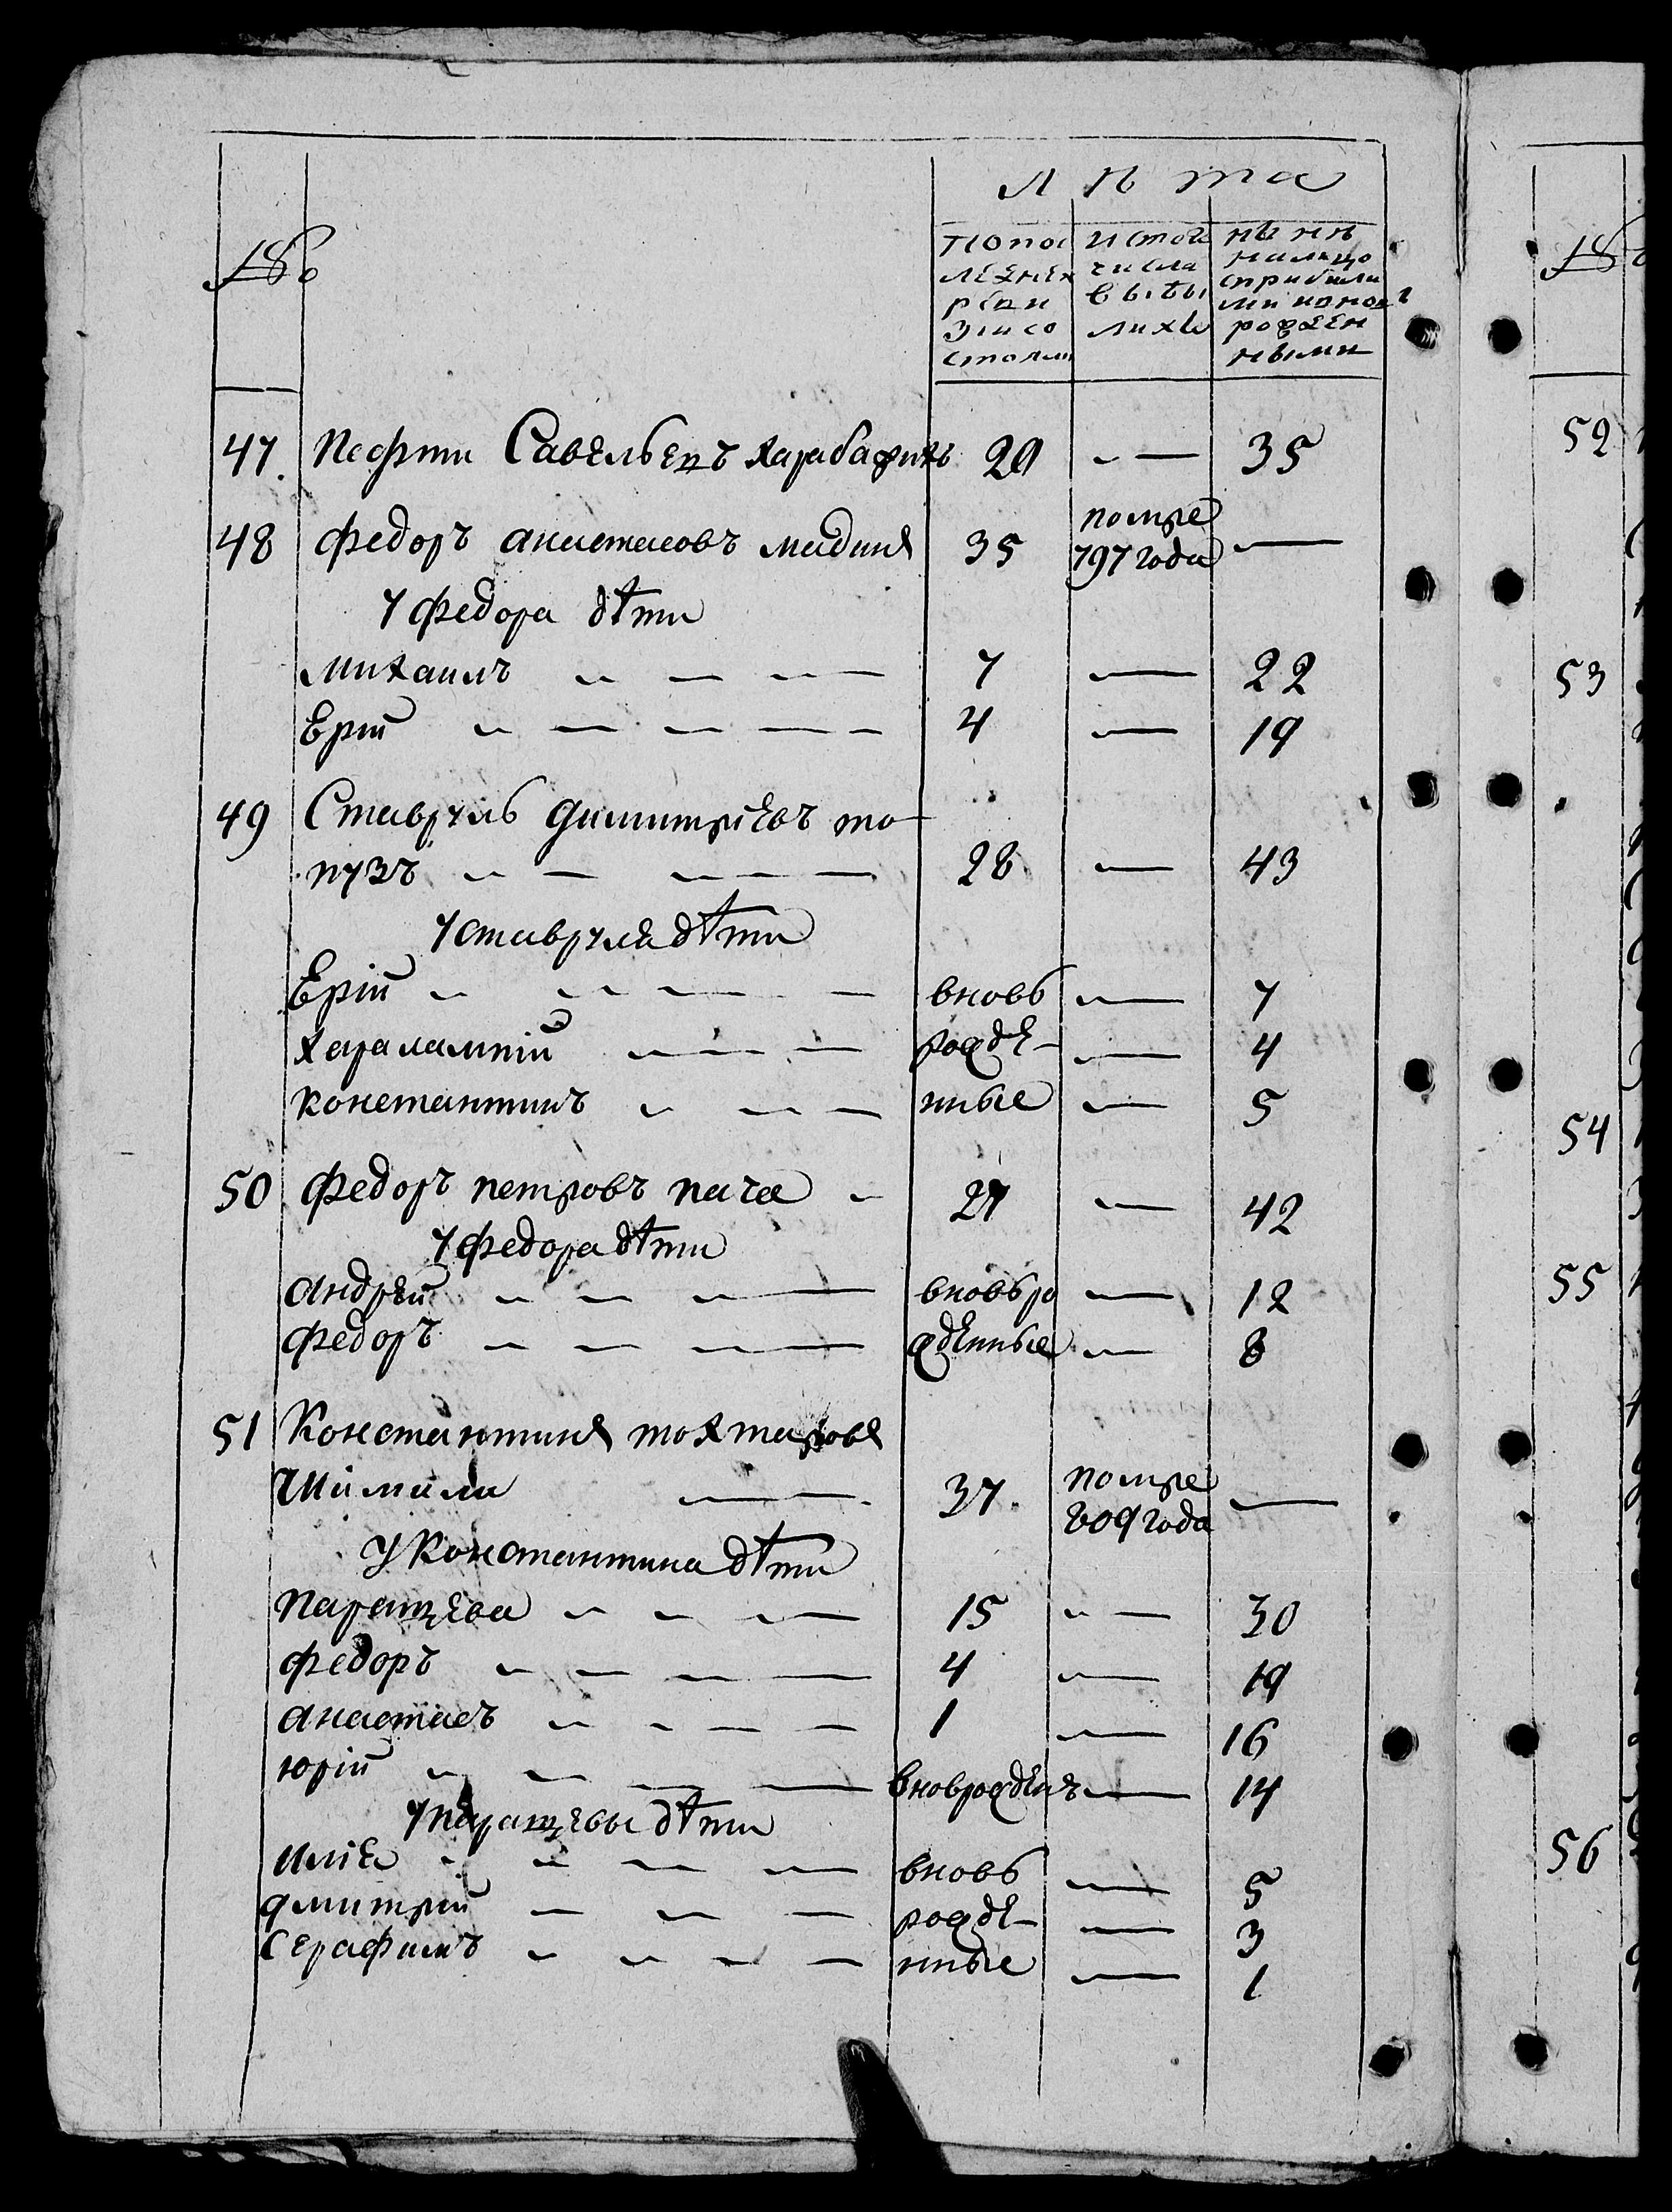 №
Лѣта
по пос
лѣдней
реви
зіи со
стояли
ис того
числа
выбы
лихъ
нынѣ
налицо
с прибыли
ми и внов
рожден
ными
47 Софрти Савельевъ харабаджихъ 20 — 35
48 Федоръ анастасовъ мадиня 35 помре 797 года —
у федора дѣти
михаилъ 7 — 22
Ерий 4 — 19
49 Ставруль димитріевъ то
пузъ 28 — 43
у ставруля дѣти
Ерій вновь — 7
харалампій рожде — 4
константинъ нные — 5
50 федоръ петровъ пача 27 — 42
у федора дѣти
андрѣй вновь ро — 12
федоръ жденные — 8
51 Константиня тохтаровя
Шимили 37 помре 809 года —
у Константина дѣти
Паращева 15 — 30
федоръ 4 — 19
анастасъ 1 — 16
юрій внов рожденъ — 14
у Паращевы дѣти
илія вновь — 5
дмитрій рожде — 3
Серафимъ нные — 1
№
52
53
54
55
56